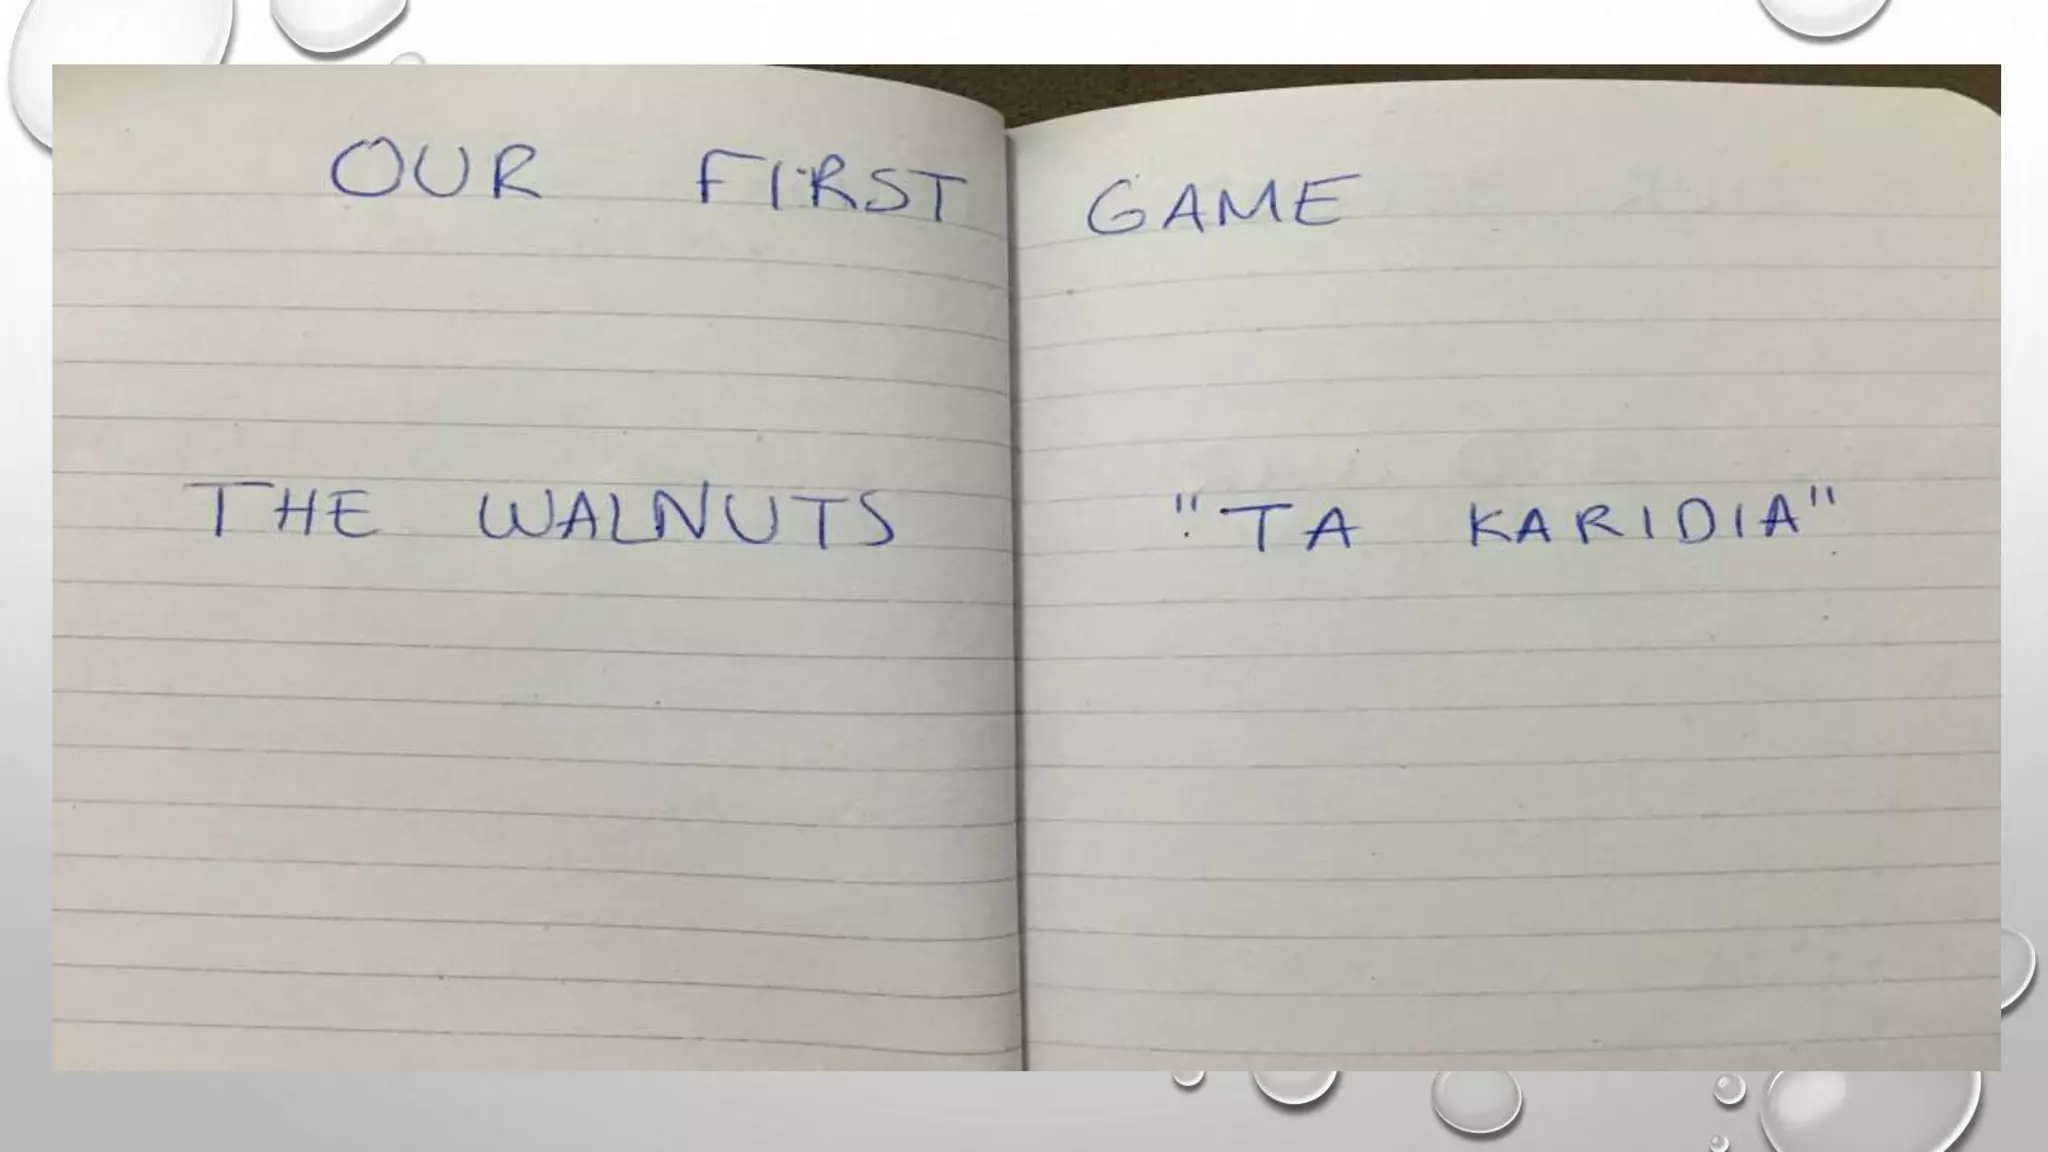 OUR FIRST GAME
THE WALNUTS "TA KARIDIA"